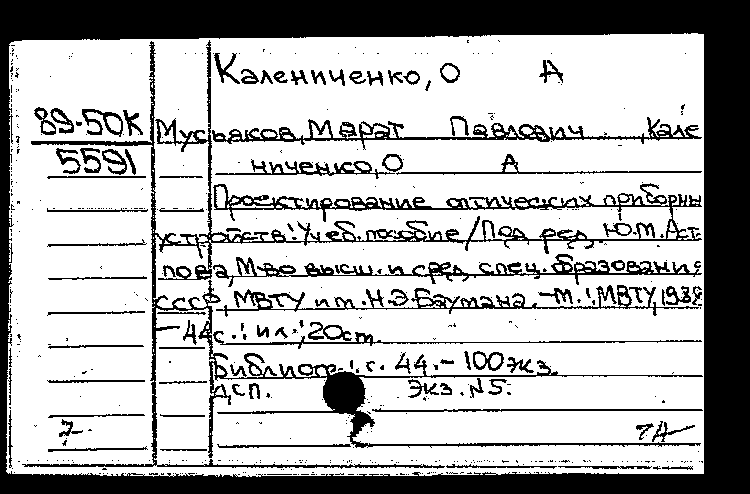 Калениченко, О А
89-50К
5591
Мусьяков, Марат Павлович, Кале
ниченко, О А
Проектирование оптических приборны
устройств: Учеб. пособие / Под ред. Ю.М. Аст
пова, М-во высш. и сред. спец. образования
СССР, МВТУ им. Н.Э. Баумана. -М.: МВТУ, 1989
-44 с.: ил.; 20 см.
Библиогр.: с. 44. - 100 экз.
ДСП. Экз. N5.
7 7А